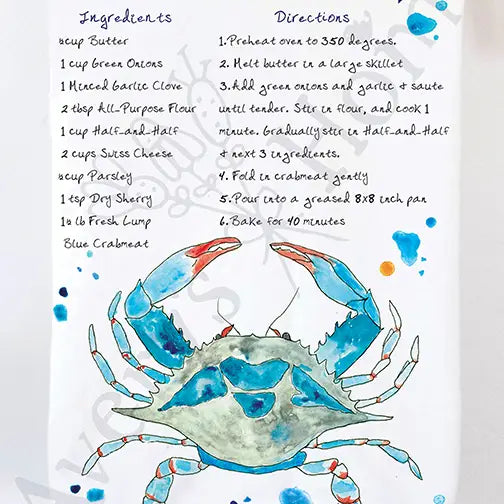 Ingredients
cup Butter
1 cup Green Onions
1 Minced Garlic Clove
2 tbsp All-Purpose Flour
1 cup Half-and-Half
2 cups Swiss Cheese
cup Parsley
1 tsp Dry Sherry
1 lb Fresh Lump
Blue Crabmeat
Directions
1. Preheat oven to 350 degrees.
2. Melt butter in a large skillet
3. Add green onions and garlic & saute
until tender. Stir in flour, and cook 1
minute. Gradually stir in Half-and-Half
& next 3 ingredients.
4. Fold in crabmeat gently
5. Pour into a greased 8x8 inch pan
6. Bake for 40 minutes